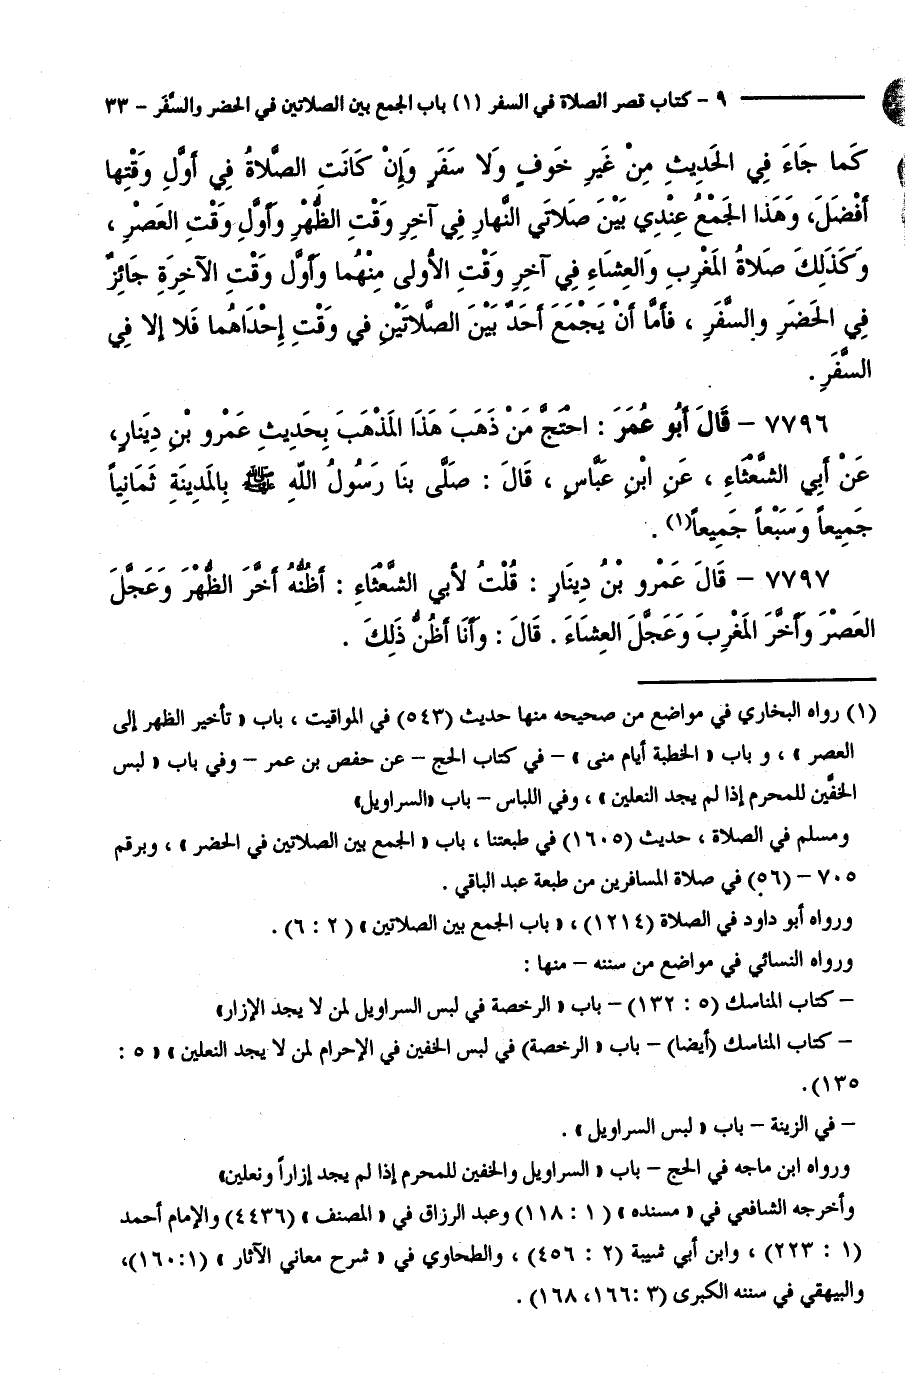 ٩ – كتاب قصر الصلاة في السفر (١) باب الجمع بين الصلاتين في الحضر والسَّفَر – ٣٣
كَما جَاءَ فِي الحَدِيثِ مِنْ غَيرِ خَوفٍ وَلا سَفَرٍ وَإِنْ كَانَتِ الصَّلاةُ فِي أوَّلِ وَقْتِها
أَفْضَلَ، وَهَذا الجَمْعُ عِنْدِي بَيْنَ صَلاتَي النَّهارِ فِي آخِرِ وَقْتِ الظُّهْرِ وَأَوَّلِ وَقْتِ العَصْرِ ،
وَكَذَلِكَ صَلاةُ المَغْرِبِ وَالعِشَاءِ فِي آخرِ وَقْتِ الأُولى مِنْهُما وَأوَّلِ وَقْتِ الآخِرَةِ جَائِزٌ
فِي الحَضَرِ والسَّفَرِ ، فَأمَّا أَنْ يَجْمَعَ أَحَدٌ بَيْنَ الصَّلاتَيْنِ في وَقْتِ إِحْدَاهُما فَلا إلا فِي
السَّفَرِ .
٧٧٩٦ – قَالَ أَبُو عُمَرَ : احْتَجَّ مَنْ ذَهَبَ هَذَا المَذْهَبَ بِحَدِيثِ عَمْرو بْنِ دِينَارٍ،
عَنْ أَبِي الشَّعْثَاءِ ، عَنِ ابْنِ عَبَّاسٍ ، قَالَ : صَلَّى بنَا رَسُولُ اللَّهِ ﷺ بِالمَدِينَةِ ثَمَانِياً
جَمِيعاً وَسَبْعاً جَمِيعاً(١) .
٧٧٩٧ – قَالَ عَمْرو بْنُ دِينَارٍ : قُلْتُ لأبي الشَّعْثَاءِ : أَظُنُّهُ أخَّرَ الظُّهْرَ وَعَجَّلَ
العَصْرَ وَأَخَّرَ المَغْرِبَ وَعَجَّلَ العِشَاءَ . قَالَ : وَأَنَا أَظُنُّ ذَلِكَ .
(١) رواه البخاري في مواضع من صحيحه منها حديث (٥٤٣) في المواقيت ، باب « تأخير الظهر إلى
العصر » ، و باب « الخطبة أيام منى » – في كتاب الحج – عن حفص بن عمر – وفي باب « لبس
الخفَّين للمحرم إذا لم يجد النعلين » ، وفي اللباس – باب «السراويل»
ومسلم في الصلاة ، حديث (١٦٠٥) في طبعتنا ، باب « الجمع بين الصلاتين في الحضر » ، وبرقم
٧٠٥ – (٥٦) في صلاة المسافرين من طبعة عبد الباقي .
ورواه أبو داود في الصلاة (١٢١٤) ، « باب الجمع بين الصلاتين » (٢ : ٦) .
ورواه النسائي في مواضع من سننه – منها :
– كتاب المناسك (٥ : ١٣٢) – باب « الرخصة في لبس السراويل لمن لا يجد الإزار»
– كتاب المناسك (أيضا) – باب « الرخصة) في لبس الخفين في الإحرام لمن لا يجد النعلين » « ٥ :
١٣٥).
– في الزينة – باب « لبس السراويل » .
ورواه ابن ماجه في الحج – باب « السراويل والخفين للمحرم إذا لم يجد إزاراً ونعلين»
وأخرجه الشافعي في « مسنده » (١ : ١١٨) وعبد الرزاق في « المصنف » (٤٤٣٦) والإمام أحمد
(١ : ٢٢٣) ، وابن أبي شيبة (٢ : ٤٥٦) ، والطحاوي في « شرح معاني الآثار » (١:١٦٠)،
والبيهقي في سننه الكبرى (٣ :١٦٦، ١٦٨) .